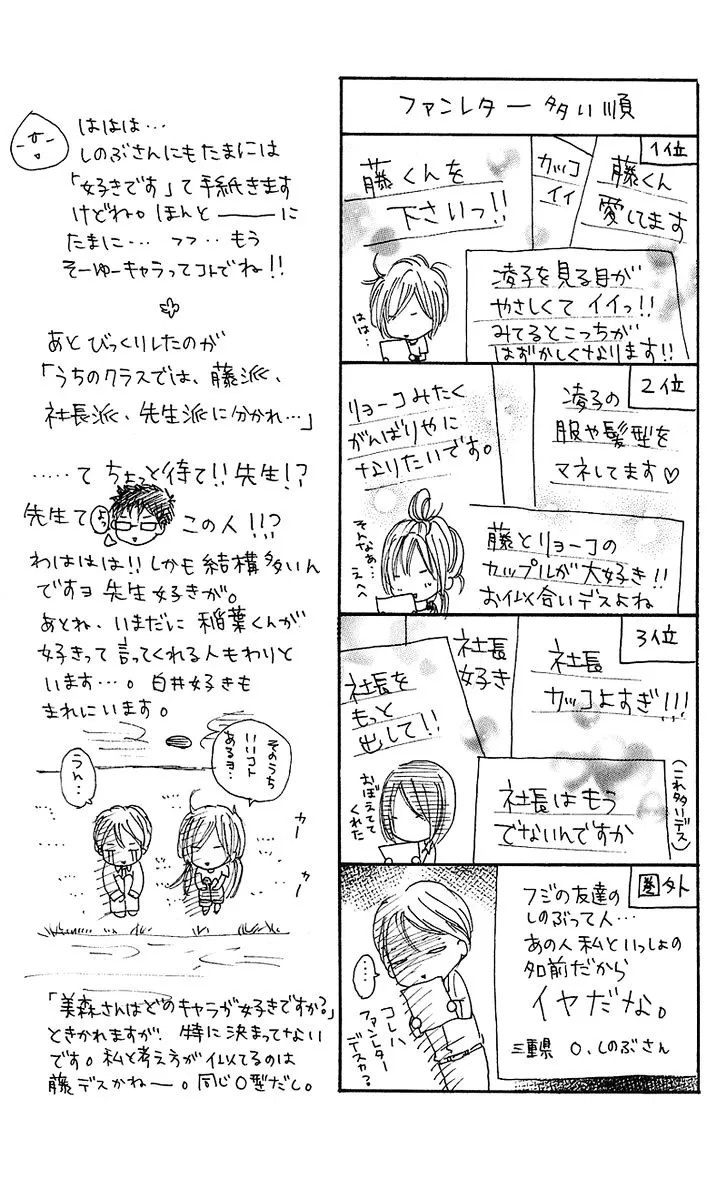 ファンレター多い順
1位
藤くん
愛してます
カッコ
イイ
藤くんを
下さいっ!!
はは…
凌子を見る目が
やさしくてイイっ!!
みてるとこっちが
はずかしくなります!!
2位
凌子の
服や髪型を
マネしてます♡
リョーコみたく
がんばりやに
なりたいです。
そんなぁ…
えへへ
藤とリョーコの
カップルが大好き!!
お似合いデスよね
3位
社長
カッコよすぎ!!!
社長
好き
社長を
もっと
出して!!
おぼえてて
くれた
社長はもう
でないんですか
(これ多いデス)
圏外
フジの友達の
しのぶって人…
あの人私といっしょの
名前だから
イヤだな。
三重県 O、しのぶさん
…
コレハ
ファンレター
デスカ?
ははは…
しのぶさんにもたまには
「好きです」て手紙きます
けどね。ほんと――――に
たまに… フフ‥もう
そーゆーキャラってコトでね!!
あとびっくりしたのが
「うちのクラスでは、藤派、
社長派、先生派に分かれ…」
……て ちょっと待て!! 先生!?
先生て よっ この人!!?
わははは!! しかも結構多いん
ですヨ先生好きが。
あとね、いまだに稲葉くんが
好きって言ってくれる人もわりと
います…。白井好きも
まれにいます。
そのうち
いいコト
あるヨ…
うん…
カー
カー
「美森さんはどのキャラが好きですか?」
ときかれますが、特に決まってない
です。私と考え方が似てるのは
藤デスかねー。同じO型だし。